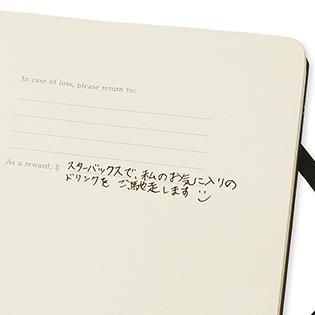 In case of loss, please return to:
As a reward: $ スターバックスで、私のお気に入りの
ドリンクを ご馳走します